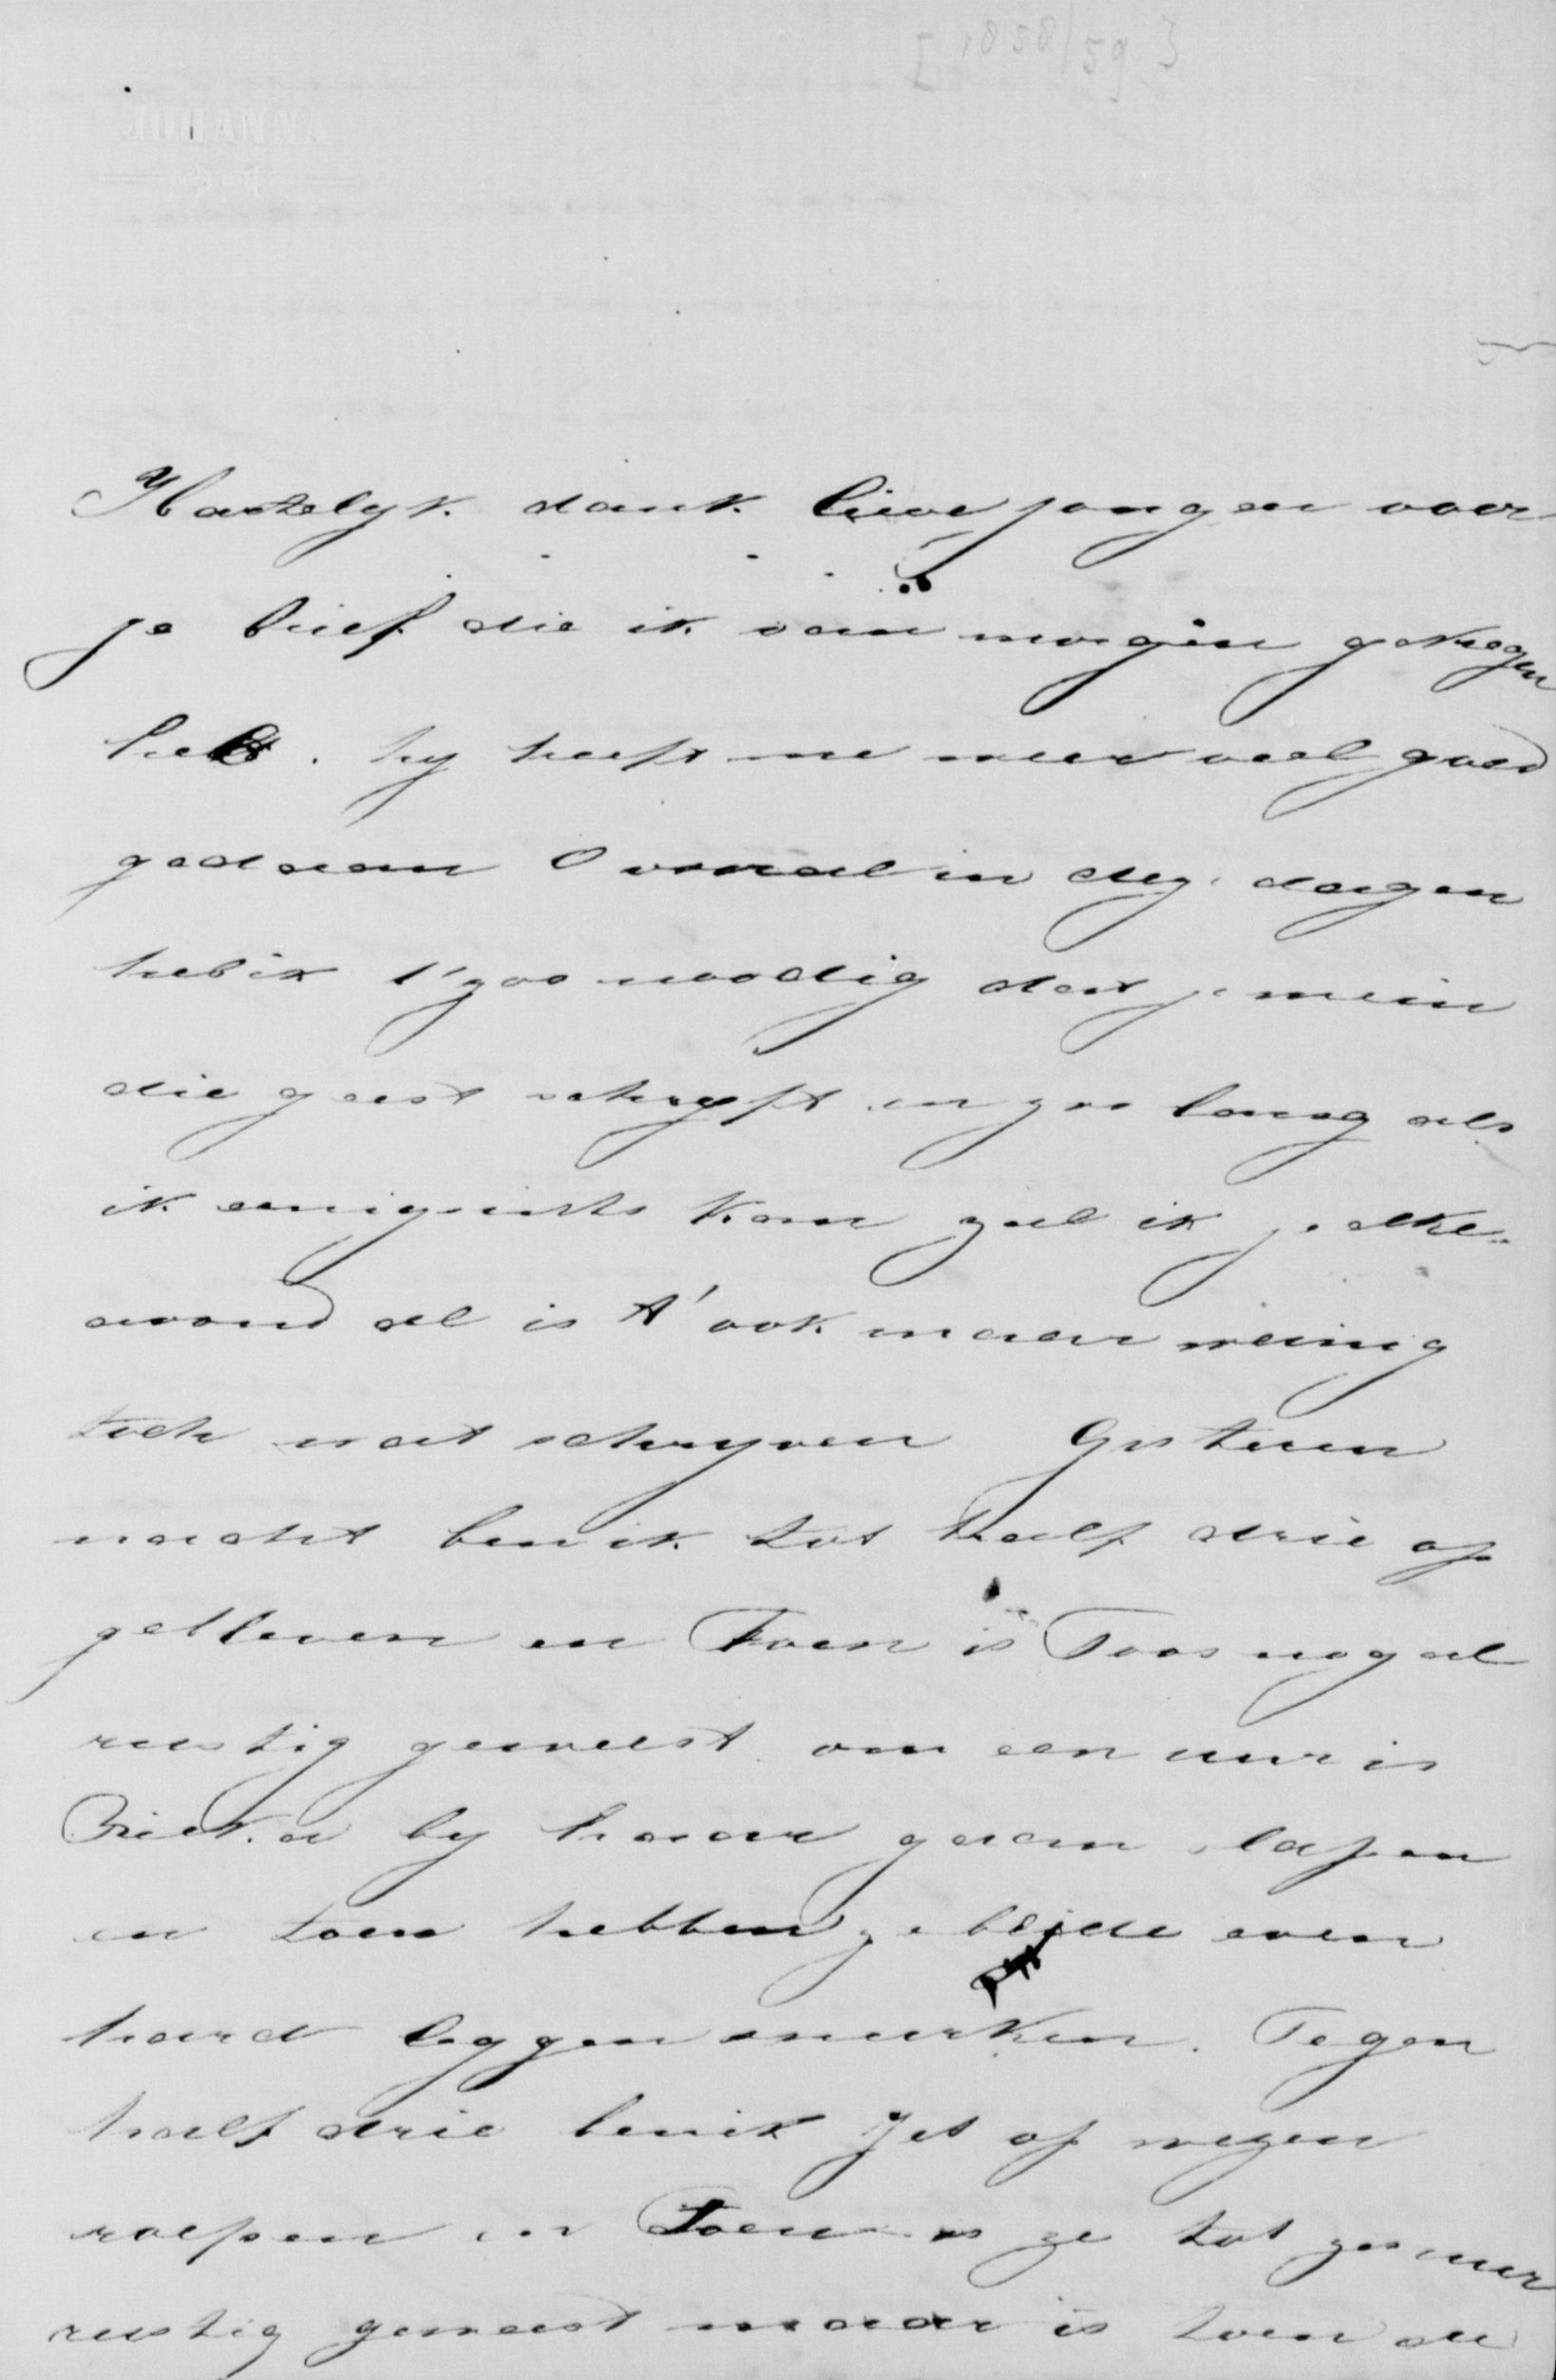 [1858/59]
Hartelyk dank lieve jongen voor
je brief die ik van morgen gekregen
heb. hy heeft me weer veel goed
gedaan Overal in dez. dagen
heb ik t' zoo noodig dat je mein
die geest schryft en zoo lang als
ik eenigzints kan zal ik je elke
avond al is t' ook maar weinig
toch wat schryven Gisteren
nacht ben ik tot half drie op
gebleven en toen is Toos nog al
rustig geweest om een uur is
by haar gaan slapen
en toen hebben ze beide even
hard leggen snurken. Tegen
half drie ben ik Jet op wezen
roepen en toen is ze tot zes uur
rustig geweest maar is toen